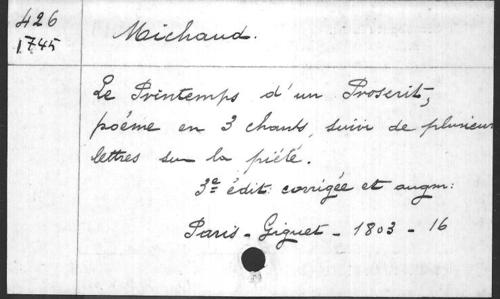 426
1745
Michaud.
Le Printemps d'un Proscrit,
poéme en 3 chants, suivi de plusieurs
lettres sur la piété.
3e édit: corrigée et augm:
Paris - Giguet - 1803 - 16